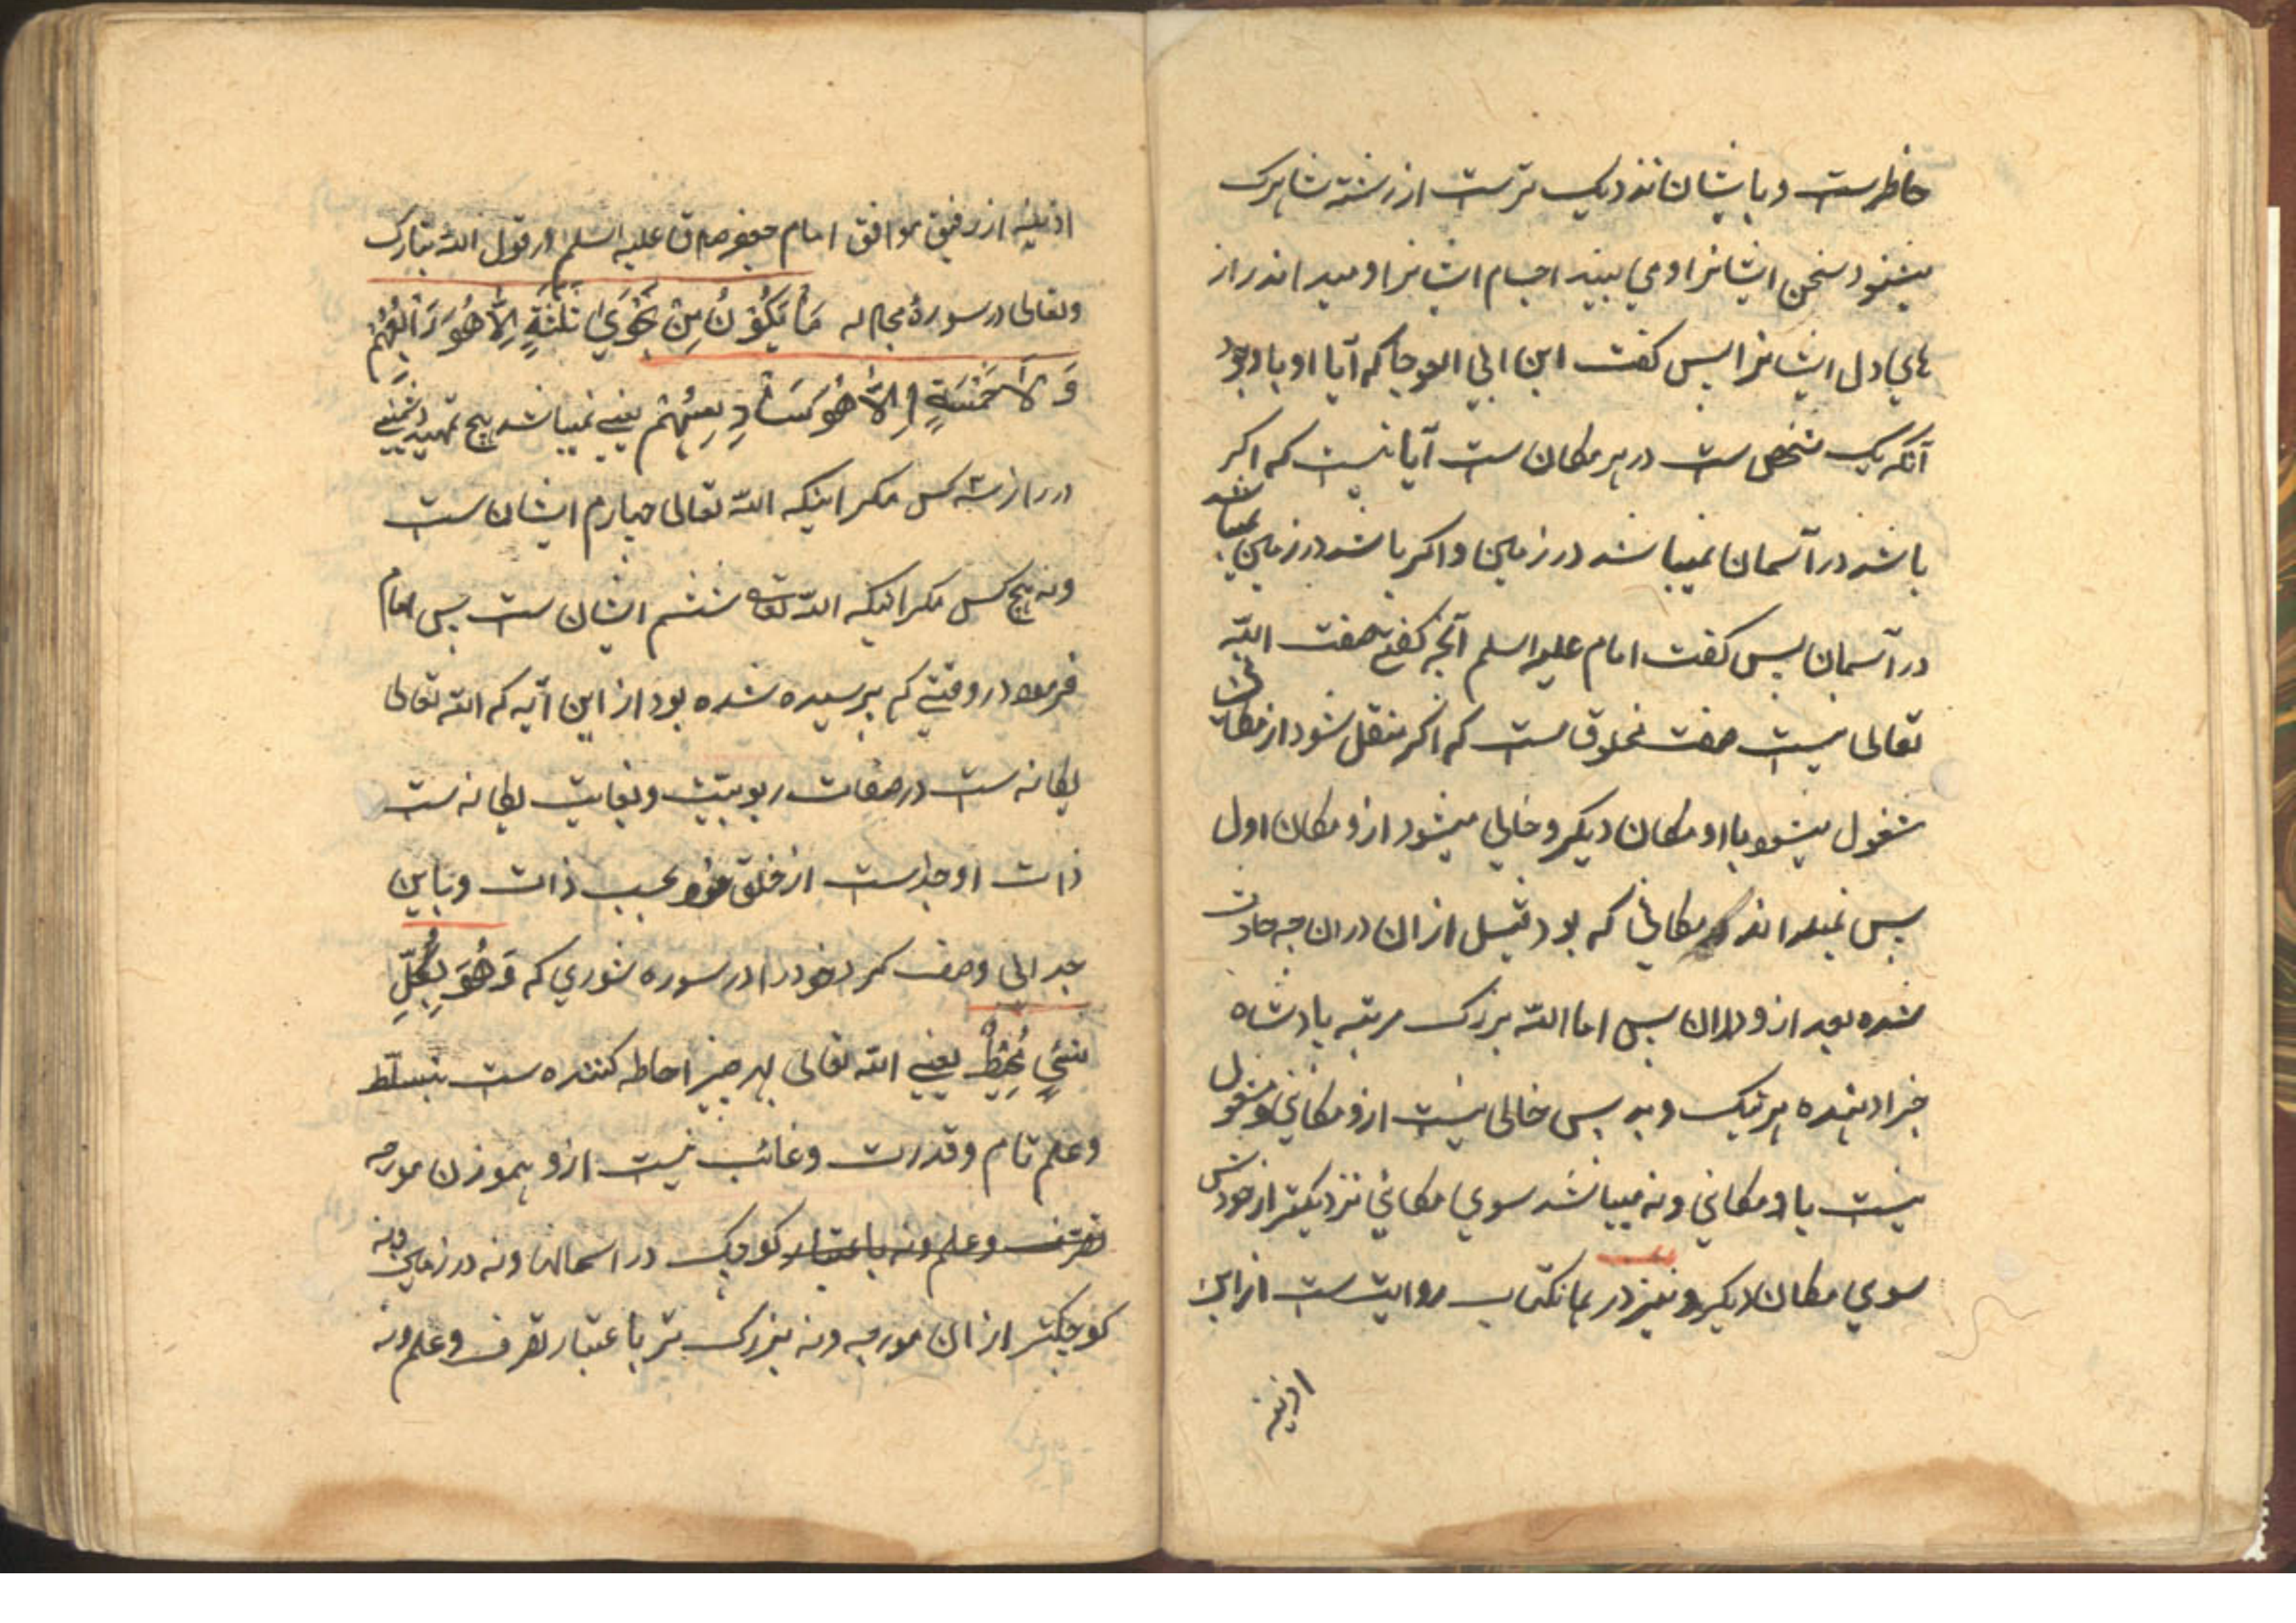 حاظرست و بایشان نزدیک ترست از رشته شاهرک
میشنود سخن ایشانرا و می بیند اجسام ایشانرا و میداند راز
های دل ایشانرا پس کفت ابن ابی العوجا که آیا او با وجود
آنکه یک شخص ست در هر مکان ست آیا نیست که اکر
باشد در آسمان نمیباشد در زمین و اکر باشد در زمین نمیباشد
در آسمان پس کفت امام علیه السلم آنچه کفتی صفت الله
تعالی نیست صفت مخلوق ست که اکر منتقل شود از مکانی
مشغول میشود باو مکان دیکر و خالی میشود ازو مکان اول
پس نمیداند در مکانی که بود قبل از ان دران چه حادث
شده بعد ازو دران پس اما الله بزرک مرتبه پادشاه
جزا دهنده هر نیک و بد پس خالی نیست ازو مکانی و مشغول
نیست باو مکانی و نه میباشد سوی مکانی نزدیکتر از خودش
سوی مکان دیکر و نیز در همانکتاب روایت ست از ابن
اذینه
اذینه از رفیق موافق امام جعفر صادق علیه السلم در قول الله تبارک
وتعالی در سورهٔ مجادله مَا یَکُوْنُ مِنْ نَجْوَیٰ ثَلٰثَةٍ اِلَّا هُوَ رَابِعُهُمْ
وَلَا خَمْسَةٍ اِلَّا هُوَ سَادِسُهُمْ یعنی نمیباشد هیچ
در راز سه کس مکر اینکه الله تعالی چهارم ایشان ست
ونه پنج کس مکر اینکه الله تعالی ششم ایشان ست پس امام
فرمود در وقتی که پرسیده شده بود از این آیه که الله تعالی
یکانه ست در صفات ربوبیت و بغایت یکانه ست
ذات او جداست از خلق خود بحسب ذات و باین
جدائی وصف کرد خود را در سوره شوری که وَهُوَ بِکُلِّ
شَیْءٍ مُحِیْطٌ یعنی الله تعالی بهر چیز احاطه کننده ست بتسلط
وعلم تام و قدرت و غائب نیست ازو هموزن مورچه
تصرف و علم ونه باعتبار کوچک در اسمانها ونه در زمین ونه
کوچکتر از ان مورچه ونه بزرک تر باعتبار تصرف و علم ونه